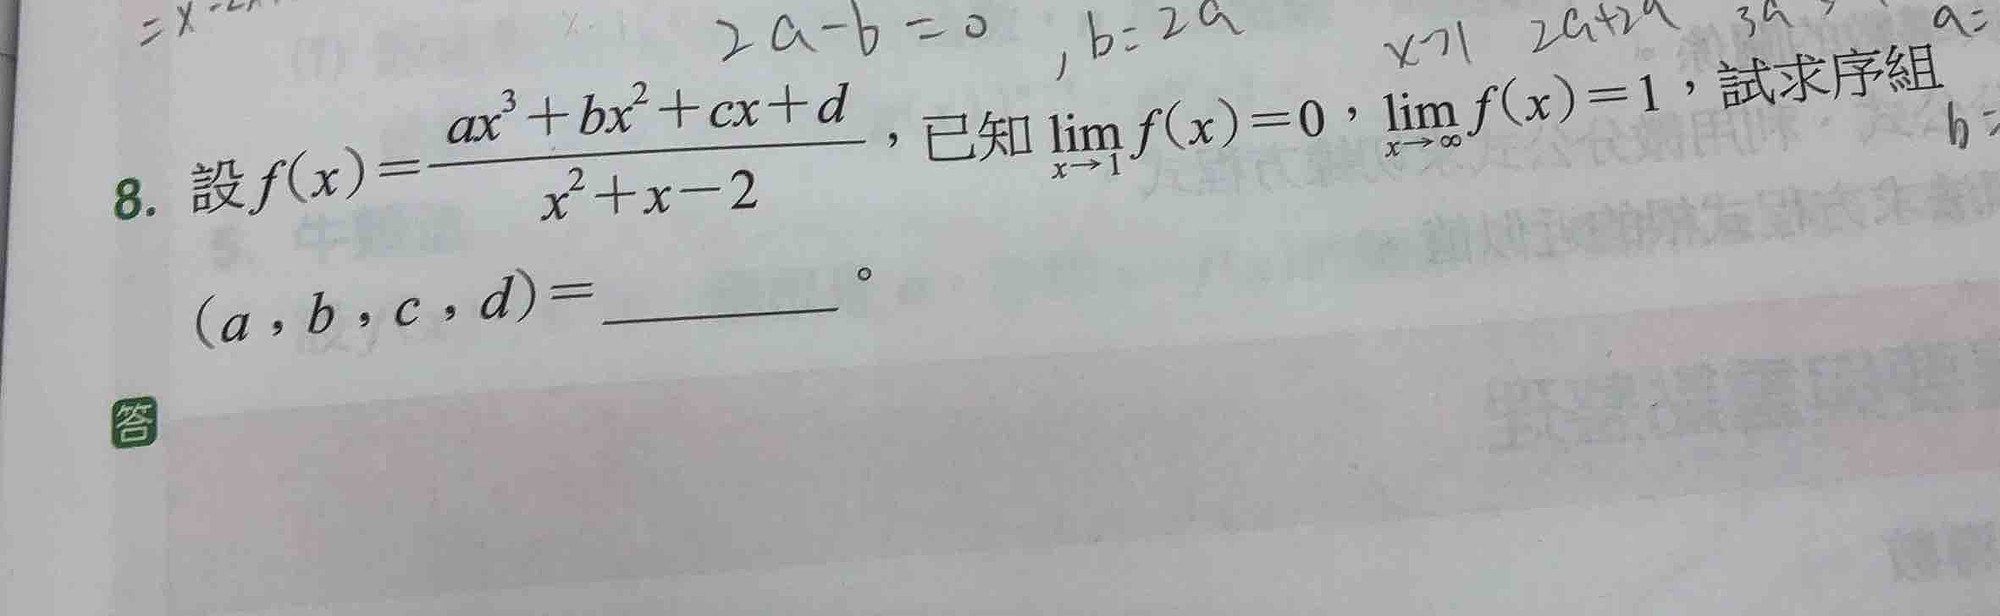 2a-b=0, b=2a
x→1 2a+2a 3a a=
8. 設f(x)=\frac{ax³+bx²+cx+d}{x²+x-2},已知 \lim_{x→1} f(x)=0,\lim_{x→∞} f(x)=1,試求序組
b=
(a,b,c,d)=________。
答